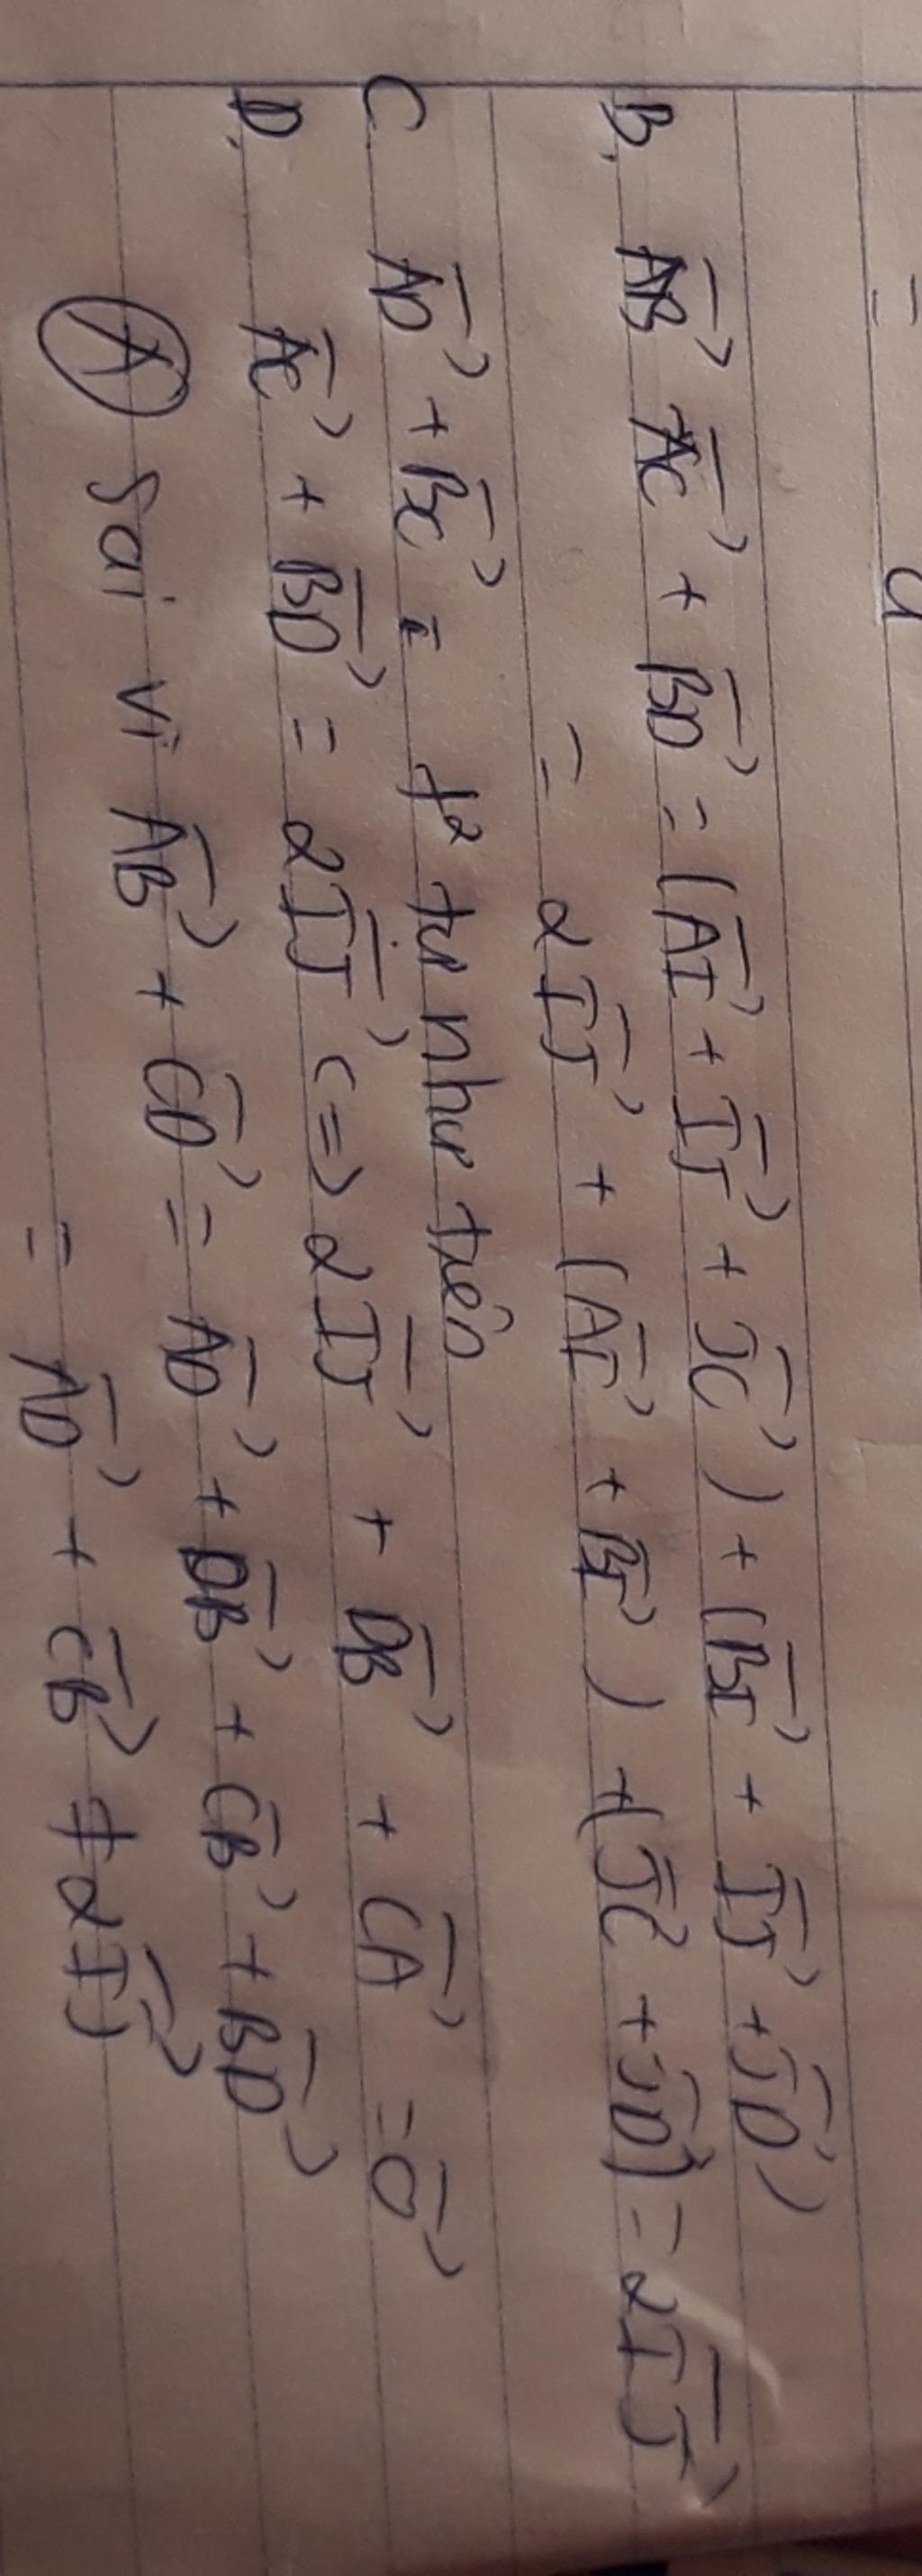 B. AB⃗ AC⃗ + BD⃗ = (AI⃗ + IJ⃗ + JC⃗) + (BI⃗ + IJ⃗ + JD⃗)
= 2IJ⃗ + (AI⃗ + BI⃗) + (JC⃗ + JD⃗) = 2IJ⃗
C AD⃗ + BC⃗ = tự như trên
D. AC⃗ + BD⃗ = 2IJ⃗ <=> 2IJ⃗ + DB⃗ + CA⃗ = 0⃗
A sai vì AB⃗ + CD⃗ = AD⃗ + DB⃗ + CB⃗ + BD⃗
= AD⃗ + CB⃗ ≠ 2IJ⃗